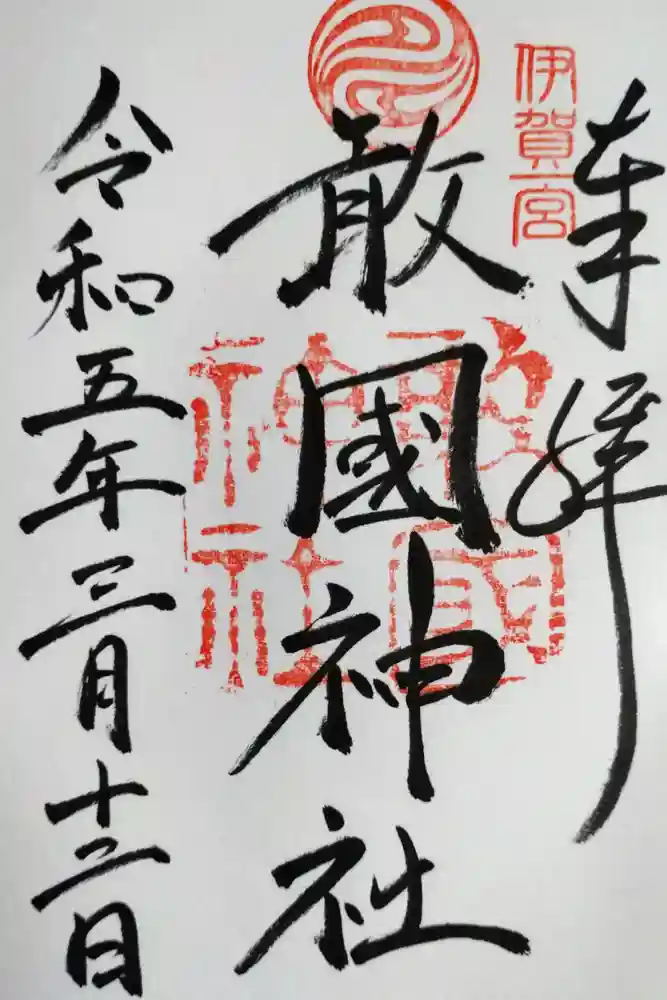 奉拝
伊賀一宮
敢國神社
令和五年三月十二日